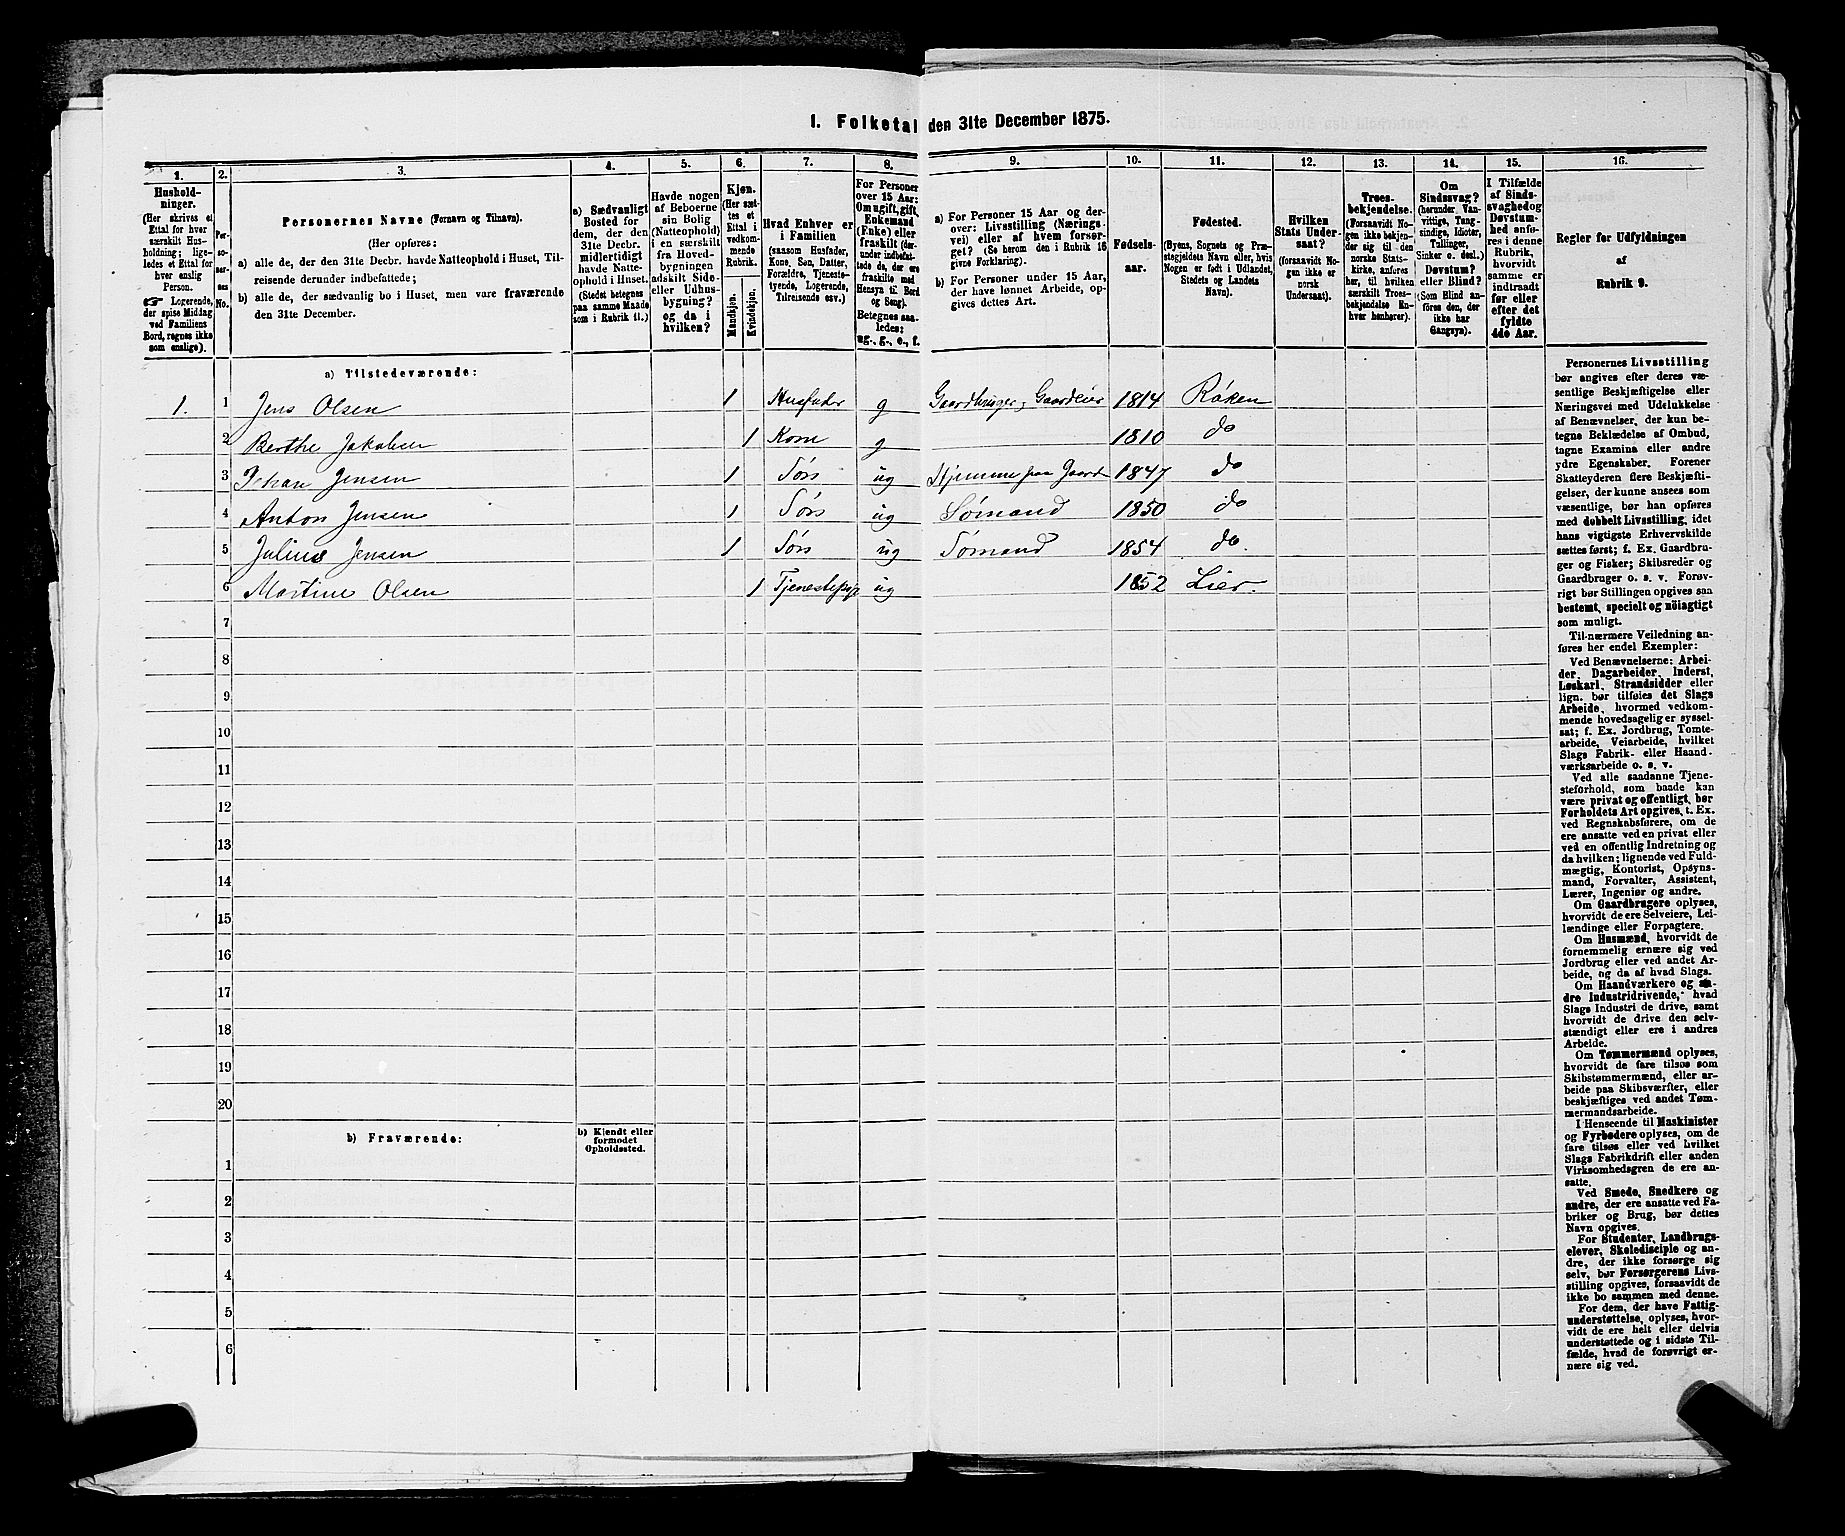 I. Folketal den 31te December 1875.
1. 2. 3. 4. 5. 6. 7. 8. 9. 10. 11. 12. 13. 14. 15. 16.
Hushold-
ninger.
(Her skrives et
Ettal for hver
særskilt Hus-
holdning; lige-
ledes et Ettal for
hver enslig
Person.
☞ Logerende,
der spise Middag
ved Familiens
Bord, regnes ikke
som enslige).
Per-
so-
ner-
nes
No.
Personernes Navne (Fornavn og Tilnavn).
(Her opføres:
a) alle de, der den 31te Decbr. havde Natteophold i Huset, Til-
reisende derunder indbefattede;
b) alle de, der sædvanlig bo i Huset, men vare fraværende
den 31te December.
a) Sædvanligt
Bosted for
dem, der den
31te Decbr.
midlertidigt
havde Natte-
ophold i Huset.
(Stedet betegnes
paa samme Maade
som i Rubrik 11.)
Havde nogen
af Beboerne
sin Bolig
(Natteophold)
i en særskilt
fra Hoved-
bygningen
adskilt Side-
eller Udhus-
bygning?
og da i
hvilken?
Kjøn.
(Her sæt-
tes et
Ettal i
vedkom-
mende
Rubrik.
Mandkjøn.
Kvindekjøn.
Hvad Enhver er
i Familien
(saasom Husfader,
Kone, Søn, Datter,
Forældre, Tjeneste-
tyende, Logerende,
Tilreisende osv.)
For Personer
over 15 Aar:
Om ugift, gift,
Enkemand
(Enke) eller
fraskilt (der-
under indbefat-
tede de, der ere
fraskilte med
Hensyn til Bord
og Seng).
Betegnes saa-
ledes:
ug., g., e., f.
a) For Personer 15 Aar og der-
over: Livsstilling (Nærings-
vei) eller af hvem forsør-
get? (Se herom den i Rubrik 16
givne Forklaring).
b) For Personer under 15 Aar,
der have lønnet Arbeide, op-
gives dettes Art.
Fødsels-
aar.
Fødested.
(Byens, Sognets og Præ-
stegjeldets Navn eller, hvis
Nogen er født i Udlandet,
Stedets og Landets
Navn).
Hvilken
Stats Under-
saat?
(forsaavidt No-
gen ikke er
norsk
Undersaat).
Troes-
bekjendelse.
(Forsaavidt No-
gen ikke bekjen-
der sig til den
norske Stats-
kirke, anføres
her, til hvilken
særskilt Troes-
bekjendelse En-
hver henhører).
Om
Sindssvag?
(herunder, Van-
vittige, Tung-
sindige, Idioter,
Tullinger,
Sinker o. desl.)
Døvstum?
eller Blind?
(Som Blind an-
føres den, der
ikke har
Gangsyn).
I Tilfælde
af Sinds-
svaghed og
Døvstum-
hed anfø-
res i denne
Rubrik,
hvorvidt
samme er
indtraadt
før eller
efter det
fyldte
4de Aar.
Regler for Udfyldningen
af
Rubrik 9.
a) Tilstedeværende:
1. 1 Jens Olsen 1 Husfader g Gaardbruger, Gaardeier 1814 Røken
2 Berthe Jakobsen 1 Kone g 1810 do
3 Johan Jensen 1 Søn ug Hjemme paa Gaard 1847 do
4 Anton Jensen 1 Søn ug Sømand 1850 do
5 Julius Jensen 1 Søn ug Sømand 1854 do.
6 Martine Olsen 1 Tjenestepige ug 1852 Lier.
7
8
9
10
11
12
13
14
15
16
17
18
19
20
b) Fraværende:
b) Kjendt eller
formodet
Opholdssted.
1
2
3
4
5
6
Personernes Livsstilling
bør angives efter deres væ-
sentlige Beskjæftigelse eller
Næringsvei med Udelukkelse
af Benævnelser, der kun be-
tegne Beklædelse af Ombud,
tagne Examina eller andre
ydre Egenskaber. Forener
Skatteyderen flere Beskjæfti-
gelser, der kunne ansees som
væsentlige, bør han opføres
med dobbelt Livsstilling, idet
hans vigtigste Erhvervskilde
sættes først; f. Ex. Gaardbru-
ger og Fisker; Skibsreder og
Gaardbruger o. s. v. Forøv-
rigt bør Stillingen opgives saa
bestemt, specielt og nöiagtigt
som muligt.
Til nærmere Veiledning an-
føres her endel Exempler:
Ved Benævnelserne: Arbei-
der, Dagarbeider, Inderst,
Løskarl, Strandsidder eller
lign. bør tilføies det Slags
Arbeide, hvormed vedkom-
mende hovedsagelig er syssel-
sat; f. Ex. Jordbrug, Tomte-
arbeide, Veiarbeide, hvilket
Slags Fabrik- eller Haand-
værksarbeide o. s. v.
Ved alle saadanne Tjene-
steforhold, som baade kan
være privat og offentligt, bør
Forholdets Art opgives, t. Ex.
ved Regnskabsførere, om de
ere ansatte ved en privat eller
ved en offentlig Indretning og
da hvilken; lignende ved Fuld-
mægtig, Kontorist, Opsyns-
mand, Forvalter, Assistent,
Lærer, Ingeniør og andre.
Om Gaardbrugere oplyses,
hvorvidt de ere Selveiere, Lei-
lændinge eller Forpagtere.
Om Husmænd, hvorvidt de
fornemmelig ernære sig ved
Jordbrug eller ved andet Ar-
beide, og da af hvad Slags.
Om Haandværkere og an-
dre Industridrivende, hvad
Slags Industri de drive, samt
hvorvidt de drive den selv-
stændigt eller ere i andres
Arbeide.
Om Tømmermænd oplyses,
hvorvidt de fare tilsøs som
Skibstømmermænd, eller ar-
beide paa Skibsværfter, eller
beskjæftiges ved andet Tøm-
mermandsarbeide.
I Henseende til Maskinister
og Fyrbødere oplyses, om de
fare tilsøs eller ved hvilket
Slags Fabrikdrift eller anden
Virksomhedsgren de ere an-
satte.
Ved Smede, Snedkere og
andre, der ere ansatte ved Fa-
briker og Brug, bør dettes
Navn opgives.
For Studenter, Landbrugs-
elever, Skoledisciple og an-
dre, der ikke forsørge sig
selv, bør Forsørgerens Livs-
stilling opgives, forsaavidt de
ikke bo sammen med denne.
For dem, der have Fattig-
understøttelse, oplyses, hvor-
vidt de ere helt eller delvis
understøttede og i sidste Til-
fælde, hvad de forøvrigt er-
nære sig ved.